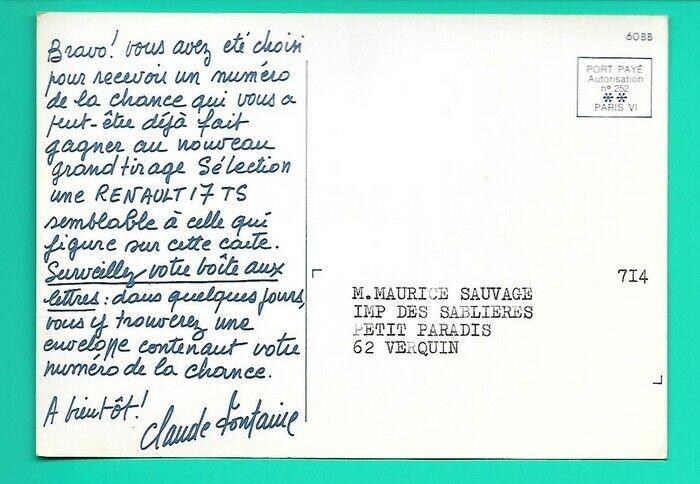 Bravo! vous avez été choisi
pour recevoir un numéro
de la chance qui vous a
peut-être déjà fait
gagner au nouveau
grand tirage Sélection
une RENAULT 17 TS
semblable à celle qui
figure sur cette carte.
Surveillez votre boîte aux
lettres : dans quelques jours,
vous y trouverez une
enveloppe contenant votre
numéro de la chance.
A bientôt!
Claude Fontaine
60BB
PORT PAYÉ
Autorisation
n° 252
**
PARIS VI
7I4
M.MAURICE SAUVAGE
IMP DES SABLIERES
PETIT PARADIS
62 VERQUIN